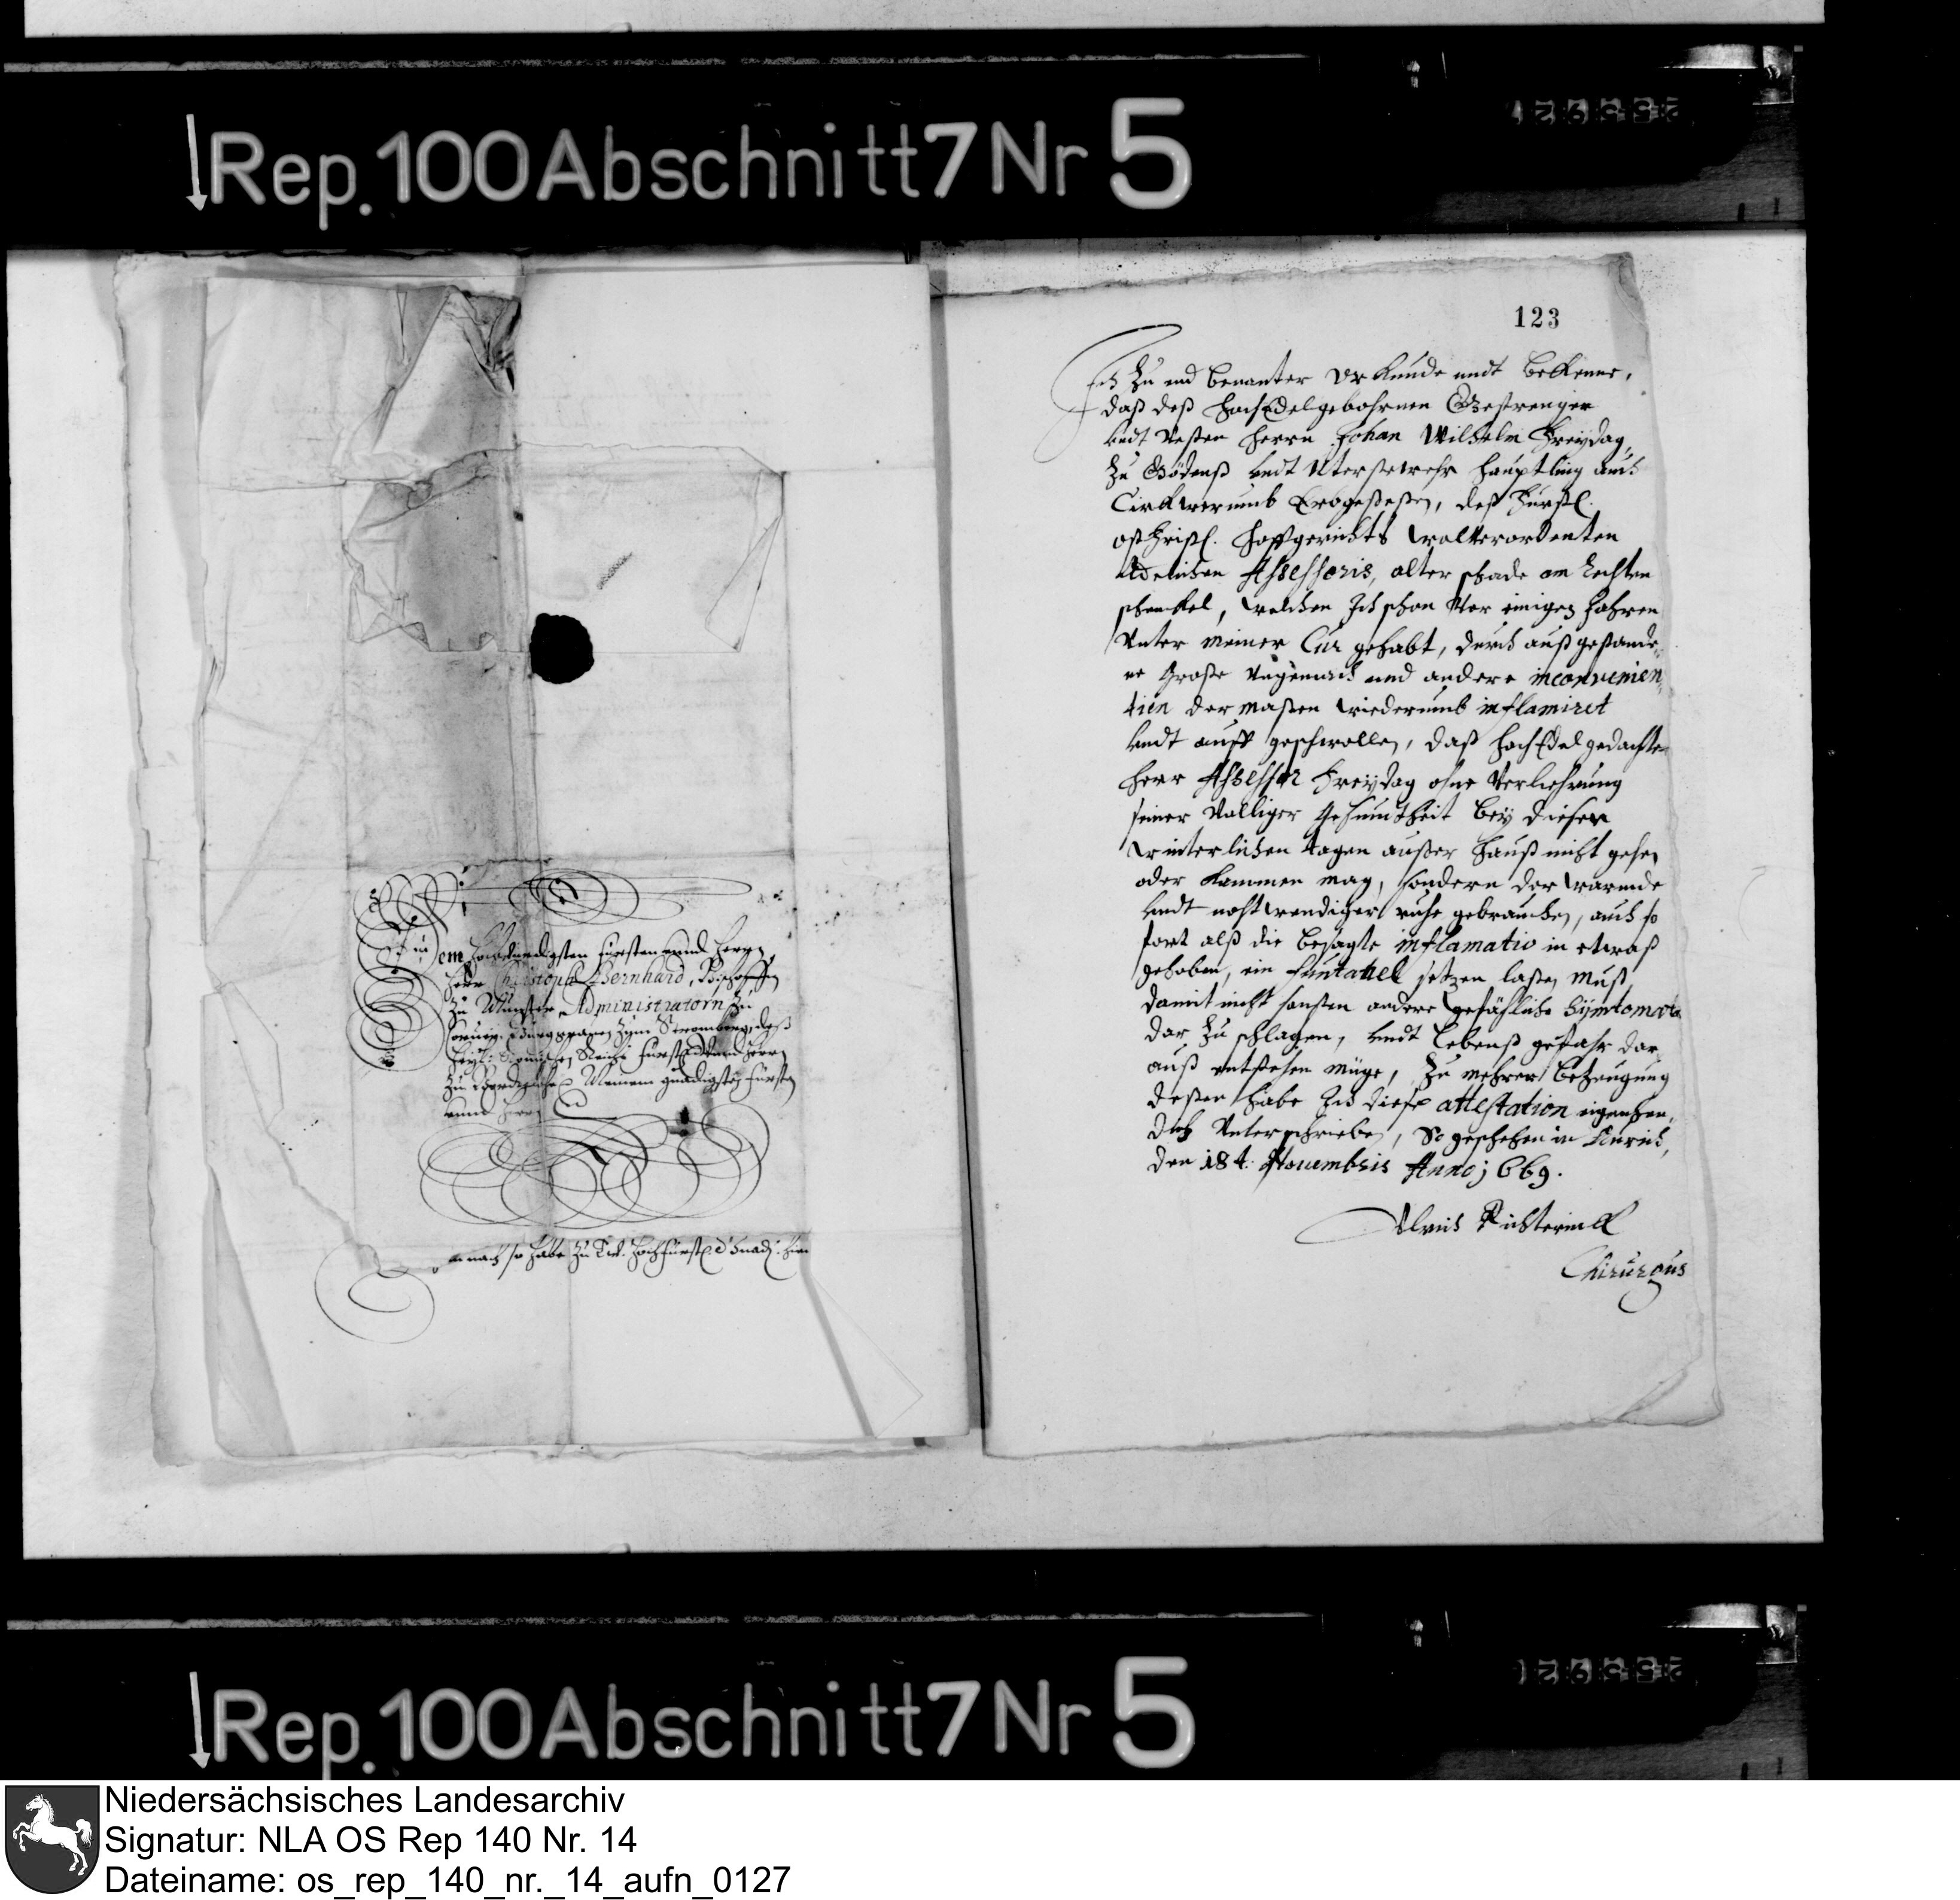 Rep. 100 Abschnitt 7 Nr 5
Dem Hochwürdigsten Fürsten unnd Herrn,
Herrn Christoph Bernhard, Bischoffen
zu Münster, Administratorn zu
Corvey, Burggraven zum Stromberg, deß
Heyl: Römischen Reichs Fürsten unnd Herrn
zu Meinem gnädigsten Fürsten
unnd Herrn
123
Ich zu end benanter Urkunde undt Bekenne,
daß deß HochEdelgebohrnen Gestrengen
undt Vesten Herrn Johan Wilhelm Freydag,
zu Gödenß undt Uterstewehr Hauptling auch
Cirkwerumb Erbgeseßen, deß Fürstl.
ostfrisl. Hoffgerichts wolverordenten
Adelichen Assessoris, alter schade am rechten
schenkel, welchen Ich schon Vor einigen Jahren
Unter meiner Cur gehabt, durch außgestande
ne Große Ungemach und andere inconvenien
tien dermaßen wiederumb inflamiret
undt auff geschwollen, daß HochEdelgedachter
Herr Assessor Freydag ohne Verliehrung
seiner Völliger Gesuntheit bey diesen
winterlichen tagen außer Hauß nicht gehen
oder kommen mag, sondern der warmde
undt nohtwendiger ruhe gebrauchen, auch so
fort alß die besagte inflamatio in etwaß
gehoben, ein funtanel setzen laßen muß
damit nicht sonsten andere gefährliche Symtomata
dar zu schlagen, undt lebenß gefahr dar
auß entstehen müge, Zu mehrer bezeugung
deßen habe Ich diese attestation eigenhen
dig Unterschrieben, So geschehen in Aurich,
den 18t. Novembris Anno 1669.
Ulrich
Chirurgus
Rep. 100 Abschnitt 7 Nr 5
Niedersächsisches Landesarchiv
Signatur: NLA OS Rep 140 Nr. 14
Dateiname: os_rep_140_nr._14_aufn_0127